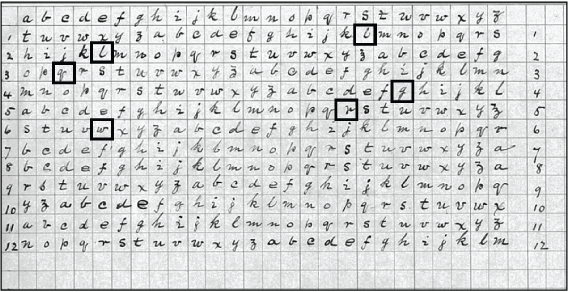 a b c d e f g h i j k l m n o p q r s t u v w x y z
1 t u v w x y z a b c d e f g h i j k l m n o p q r s 1
2 h i j k l m n o p q r s t u v w x y z a b c d e f g 2
3 o p q r s t u v w x y z a b c d e f g h i j k l m n 3
4 m n o p q r s t u v w x y z a b c d e f g h i j k l 4
5 a b c d e f g h i j k l m n o p q r s t u v w x y z 5
6 s t u v w x y z a b c d e f g h i j k l m n o p q r 6
7 b c d e f g h i j k l m n o p q r s t u v w x y z a 7
8 b c d e f g h i j k l m n o p q r s t u v w x y z a 8
9 r s t u v w x y z a b c d e f g h i j k l m n o p q 9
10 y z a b c d e f g h i j k l m n o p q r s t u v w x 10
11 a b c d e f g h i j k l m n o p q r s t u v w x y z 11
12 n o p q r s t u v w x y z a b c d e f g h i j k l m 12